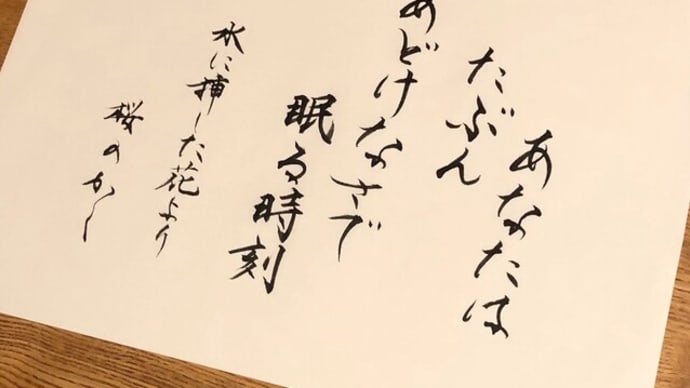 あなたは
たぶん
あどけなさで
眠る時刻
水に挿した花より
桜のかし